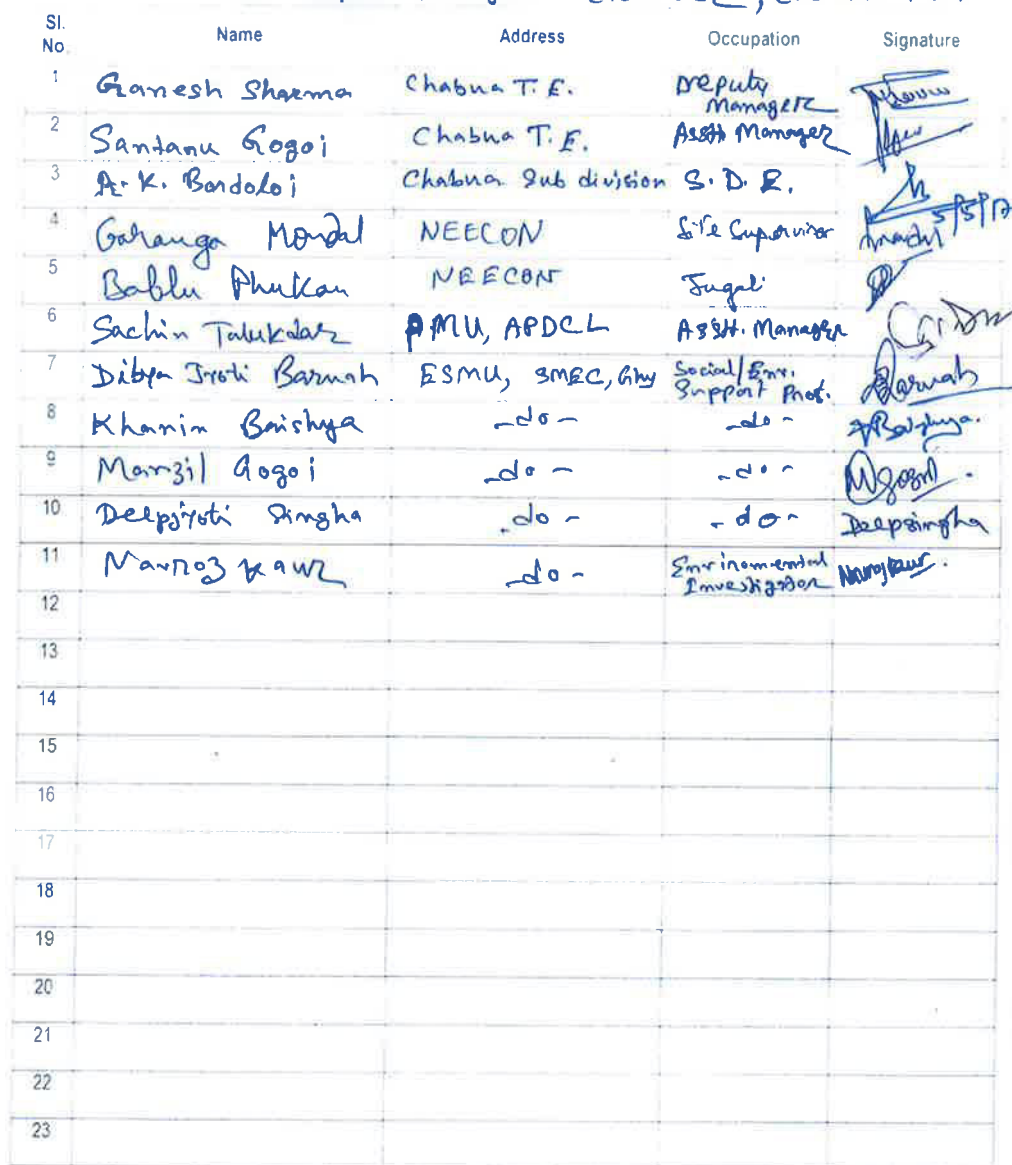 Sl. No. Name Address Occupation Signature
1 Ganesh Sharma Chabua T.E. Deputy Manager
2 Santanu Gogoi Chabua T.E. Asstt Manager
3 A. K. Bordoloi Chabua Sub division S.D.E. 5/5/17
4 Garauga Mondal NEECON Site Supervisor
5 Bablu Phukan NEECON Jugali
6 Sachin Talukdar PMU, APDCL Asstt. Manager
7 Dibya Jyoti Baruah ESMU, SMEC, Ghy Social/Env. Support Prof. Baruah
8 Khanin Baishya -do- -do- Baishya.
9 Manzil Gogoi -do- -do- MGogoi.
10 Deepjyoti Singha -do- -do- Deepsingha
11 Navroz Kaur -do- Envinomental Investigator Navrozkaur.
12
13
14
15
16
17
18
19
20
21
22
23